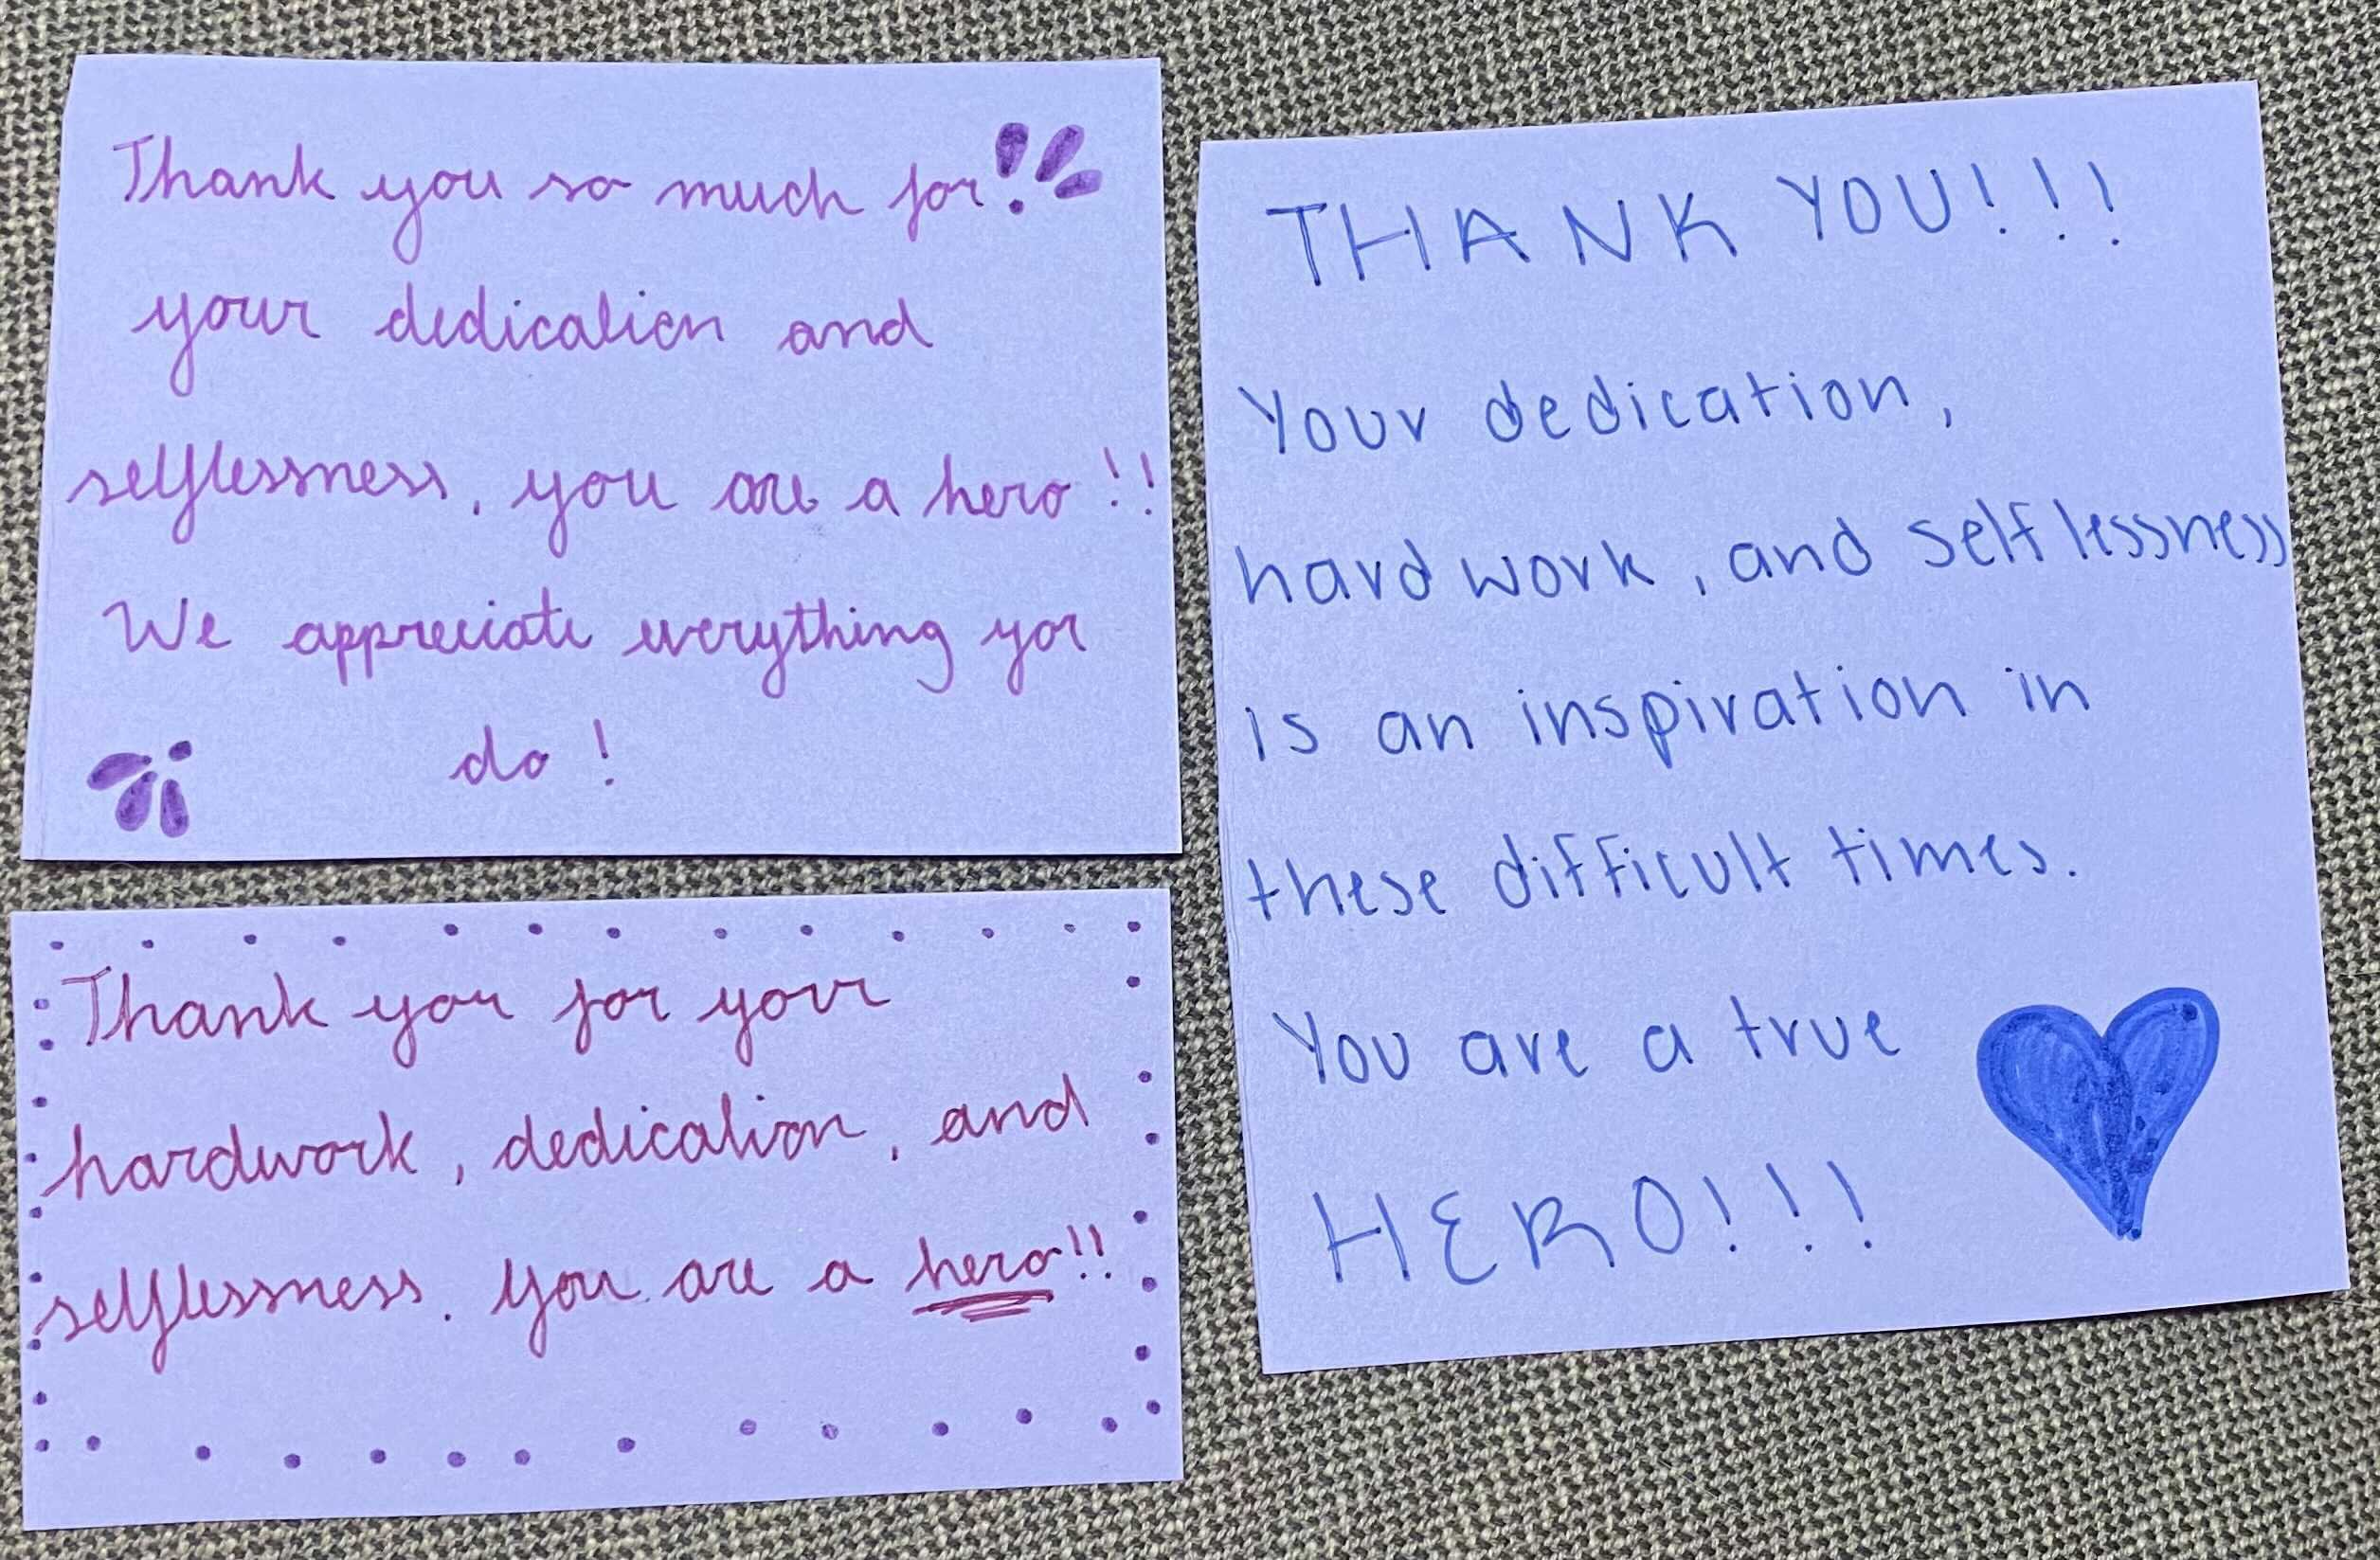 Thank you so much for
your dedication and
selflessness, you are a hero!!
We appreciate everything you
do!
Thank you for your
hardwork, dedication, and
selflessness. You are a hero!!
THANK YOU!!!
Your dedication,
hard work, and selflessness
is an inspiration in
these difficult times.
You are a true
HERO!!!